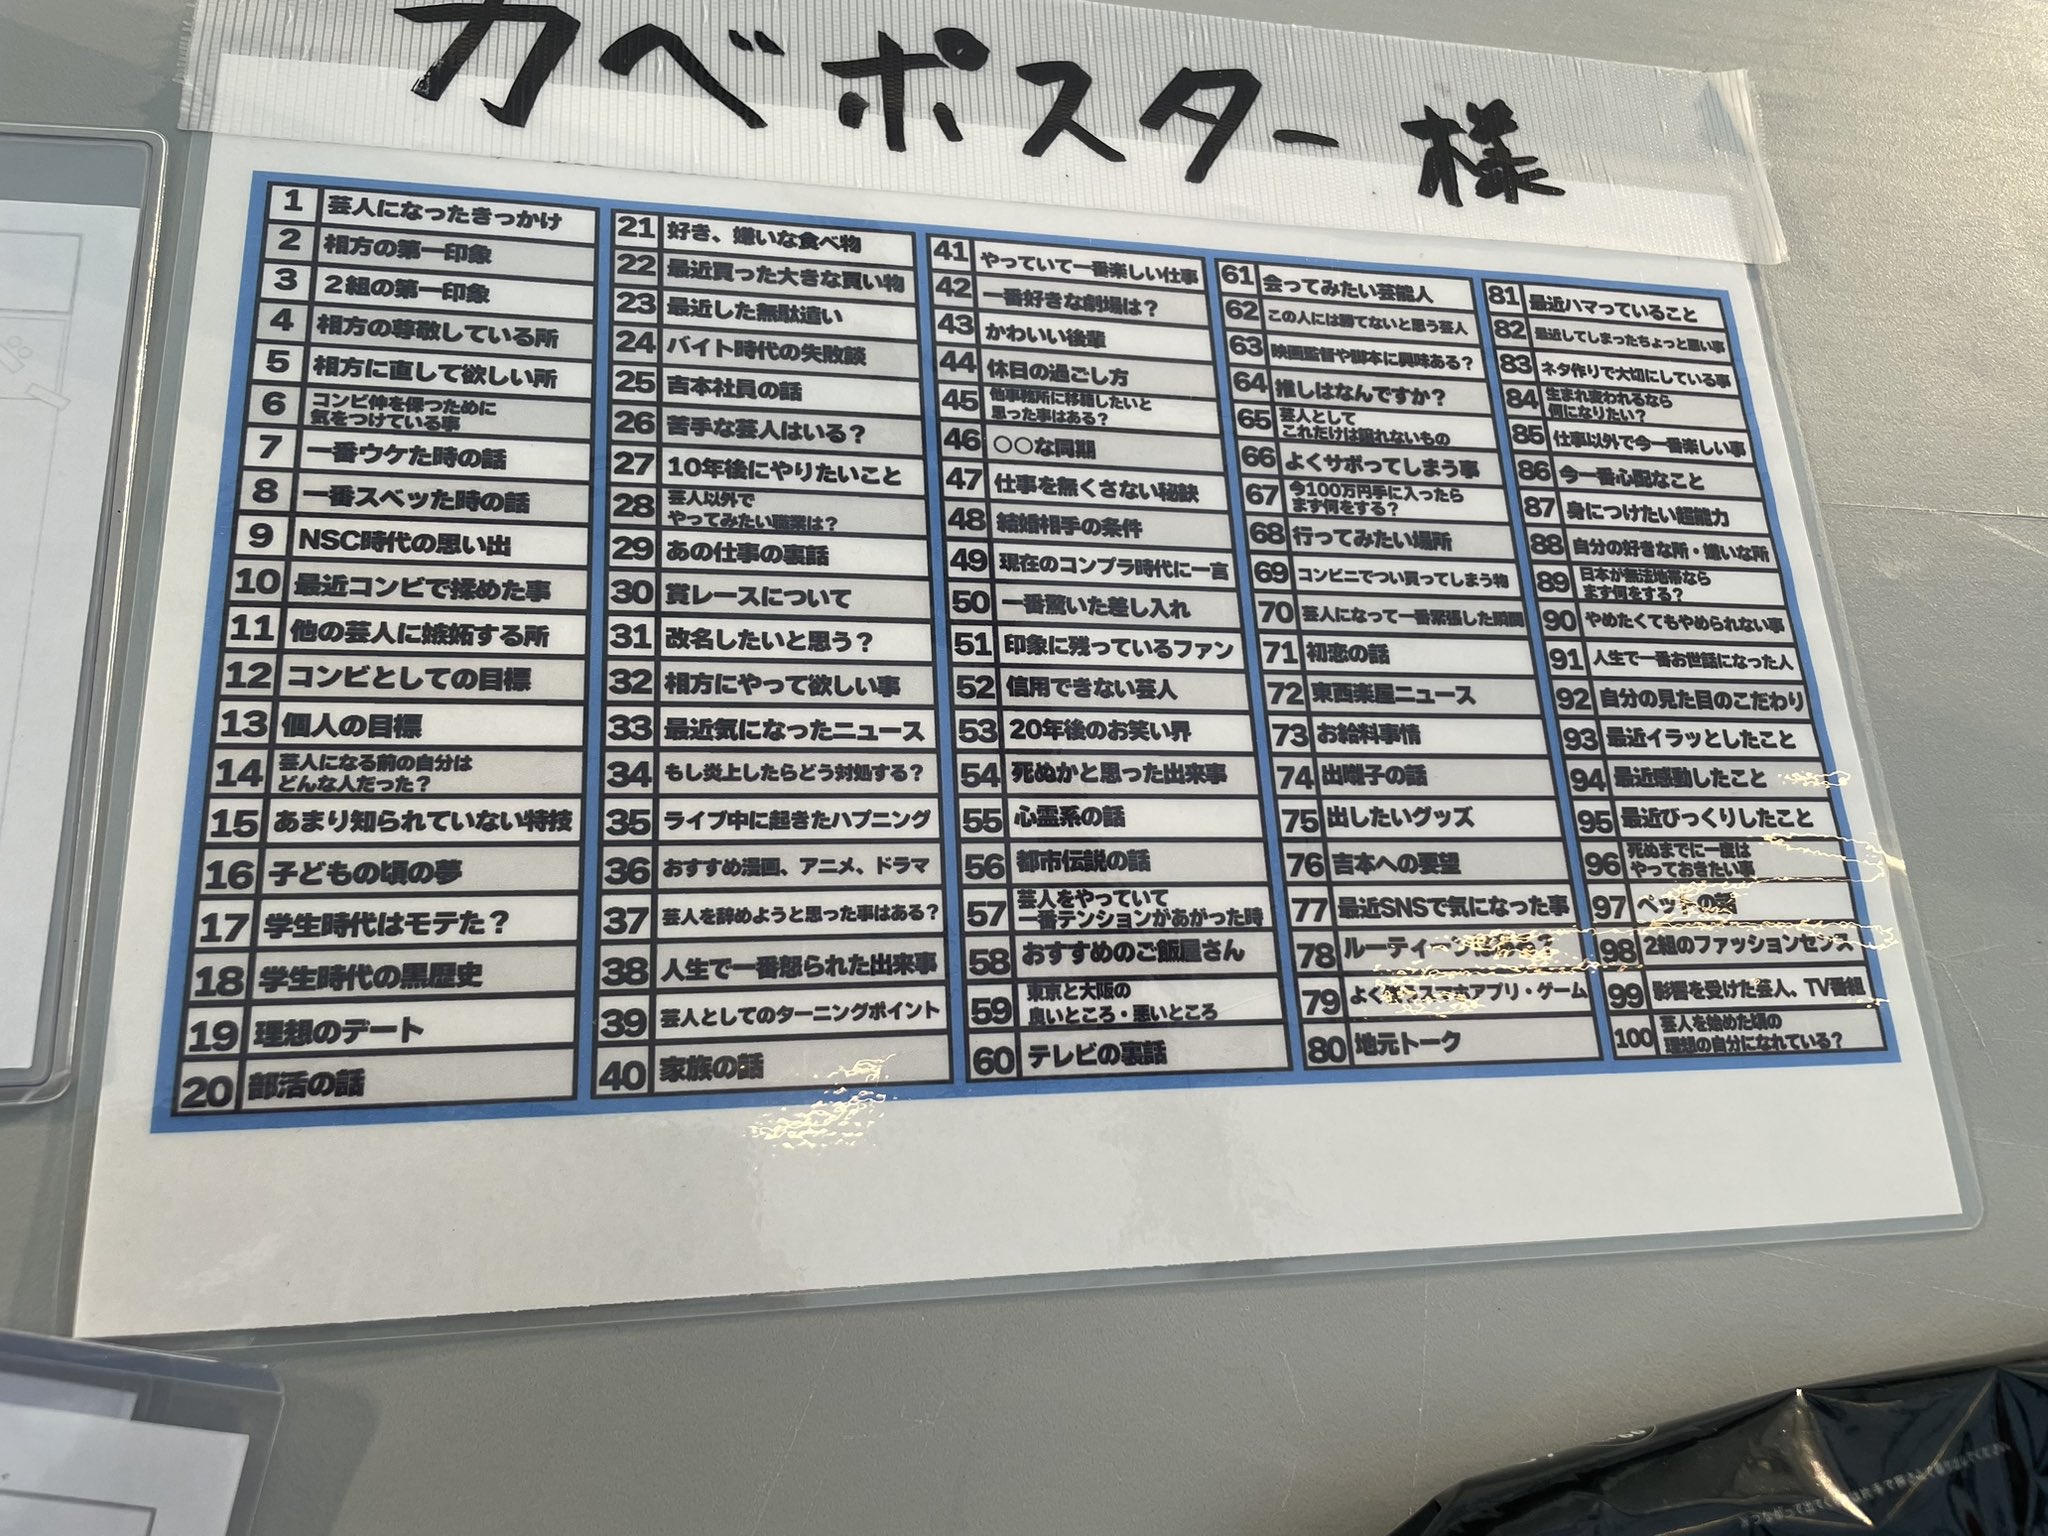 カベポスター 様
1 芸人になったきっかけ
2 相方の第一印象
3 2組の第一印象
4 相方の尊敬している所
5 相方に直して欲しい所
6 コンビ仲を保つために
気をつけている事
7 一番ウケた時の話
8 一番スベッた時の話
9 NSC時代の思い出
10 最近コンビで揉めた事
11 他の芸人に嫉妬する所
12 コンビとしての目標
13 個人の目標
14 芸人になる前の自分は
どんな人だった？
15 あまり知られていない特技
16 子どもの頃の夢
17 学生時代はモテた？
18 学生時代の黒歴史
19 理想のデート
20 部活の話
21 好き、嫌いな食べ物
22 最近買った大きな買い物
23 最近した無駄遣い
24 バイト時代の失敗談
25 吉本社員の話
26 苦手な芸人はいる？
27 10年後にやりたいこと
28 芸人以外で
やってみたい職業は？
29 あの仕事の裏話
30 賞レースについて
31 改名したいと思う？
32 相方にやって欲しい事
33 最近気になったニュース
34 もし炎上したらどう対処する？
35 ライブ中に起きたハプニング
36 おすすめ漫画、アニメ、ドラマ
37 芸人を辞めようと思った事はある？
38 人生で一番怒られた出来事
39 芸人としてのターニングポイント
40 家族の話
41 やっていて一番楽しい仕事
42 一番好きな劇場は？
43 かわいい後輩
44 休日の過ごし方
45 他事務所に移籍したいと
思った事はある？
46 ○○な同期
47 仕事を無くさない秘訣
48 結婚相手の条件
49 現在のコンプラ時代に一言
50 一番驚いた差し入れ
51 印象に残っているファン
52 信用できない芸人
53 20年後のお笑い界
54 死ぬかと思った出来事
55 心霊系の話
56 都市伝説の話
57 芸人をやっていて
一番テンションがあがった時
58 おすすめのご飯屋さん
59 東京と大阪の
良いところ・悪いところ
60 テレビの裏話
61 会ってみたい芸能人
62 この人には勝てないと思う芸人
63 映画監督や脚本に興味ある？
64 推しはなんですか？
65 芸人として
これだけは譲れないもの
66 よくサボってしまう事
67 今100万円手に入ったら
まず何をする？
68 行ってみたい場所
69 コンビニでつい買ってしまう物
70 芸人になって一番緊張した瞬間
71 初恋の話
72 東西楽屋ニュース
73 お給料事情
74 出囃子の話
75 出したいグッズ
76 吉本への要望
77 最近SNSで気になった事
78 ルーティーンはある？
79 よく使うスマホアプリ・ゲーム
80 地元トーク
81 最近ハマっていること
82 最近してしまったちょっと悪い事
83 ネタ作りで大切にしている事
84 生まれ変われるなら
何になりたい？
85 仕事以外で今一番楽しい事
86 今一番心配なこと
87 身につけたい超能力
88 自分の好きな所・嫌いな所
89 日本が無法地帯なら
まず何をする？
90 やめたくてもやめられない事
91 人生で一番お世話になった人
92 自分の見た目のこだわり
93 最近イラッとしたこと
94 最近感動したこと
95 最近びっくりしたこと
96 死ぬまでに一度は
やっておきたい事
97 ペットの話
98 2組のファッションセンス
99 影響を受けた芸人、TV番組
100 芸人を始めた頃の
理想の自分になれている？